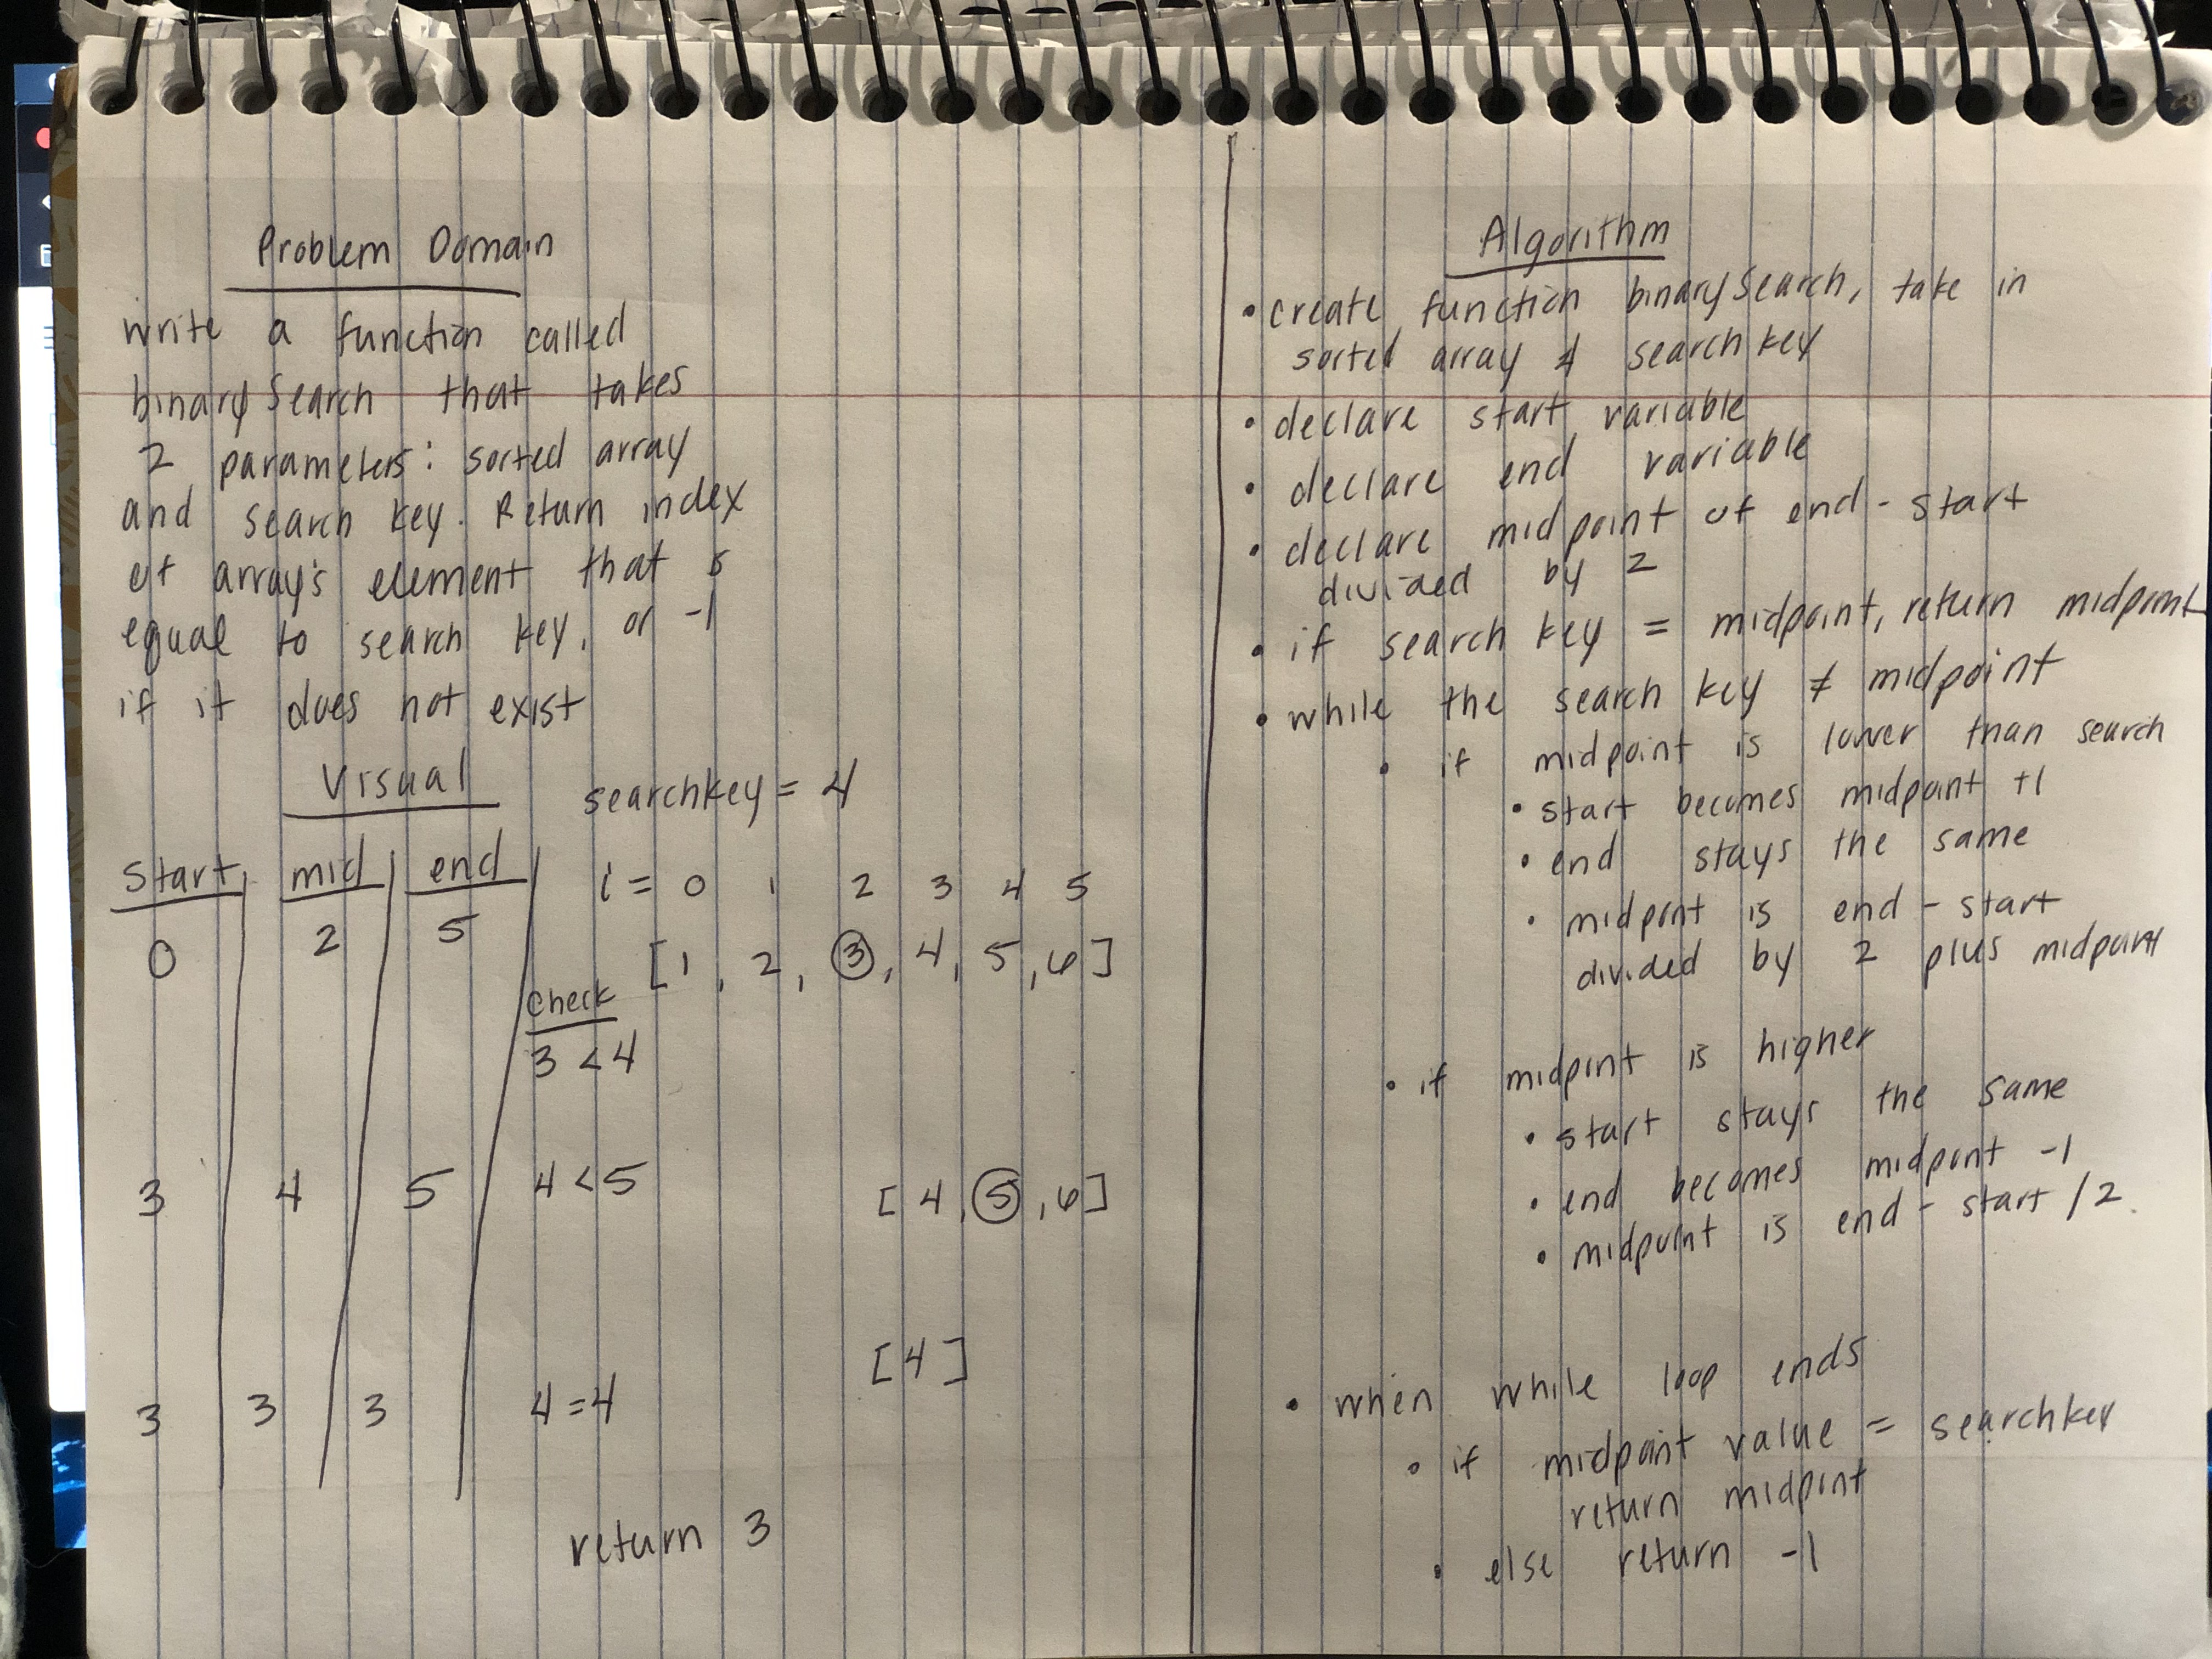 Problem Domain
write a function called
binarySearch that takes
2 parameters: sorted array
and search key. Return index
of array's element that is
equal to search key, or -1
if it does not exist
Visual
searchkey = 4
start mid end
i = 0 1 2 3 4 5
0 2 5
[1, 2, 3, 4, 5, 6]
check
3 < 4
3 4 5 4 < 5 [4, 5, 6]
[4]
3 3 3 4 = 4
return 3
Algorithm
• create function binarySearch, take in
sorted array & search key
• declare start variable
• declare end variable
• declare midpoint of end - start
divided by 2
• if search key = midpoint, return midpoint
• while the search key ≠ midpoint
• if midpoint is lower than search
• start becomes midpoint +1
• end stays the same
• midpoint is end - start
divided by 2 plus midpoint
• if midpoint is higher
• start stays the same
• end becomes midpoint -1
• midpoint is end - start /2
• when while loop ends
• if midpoint value = searchkey
return midpoint
• else return -1